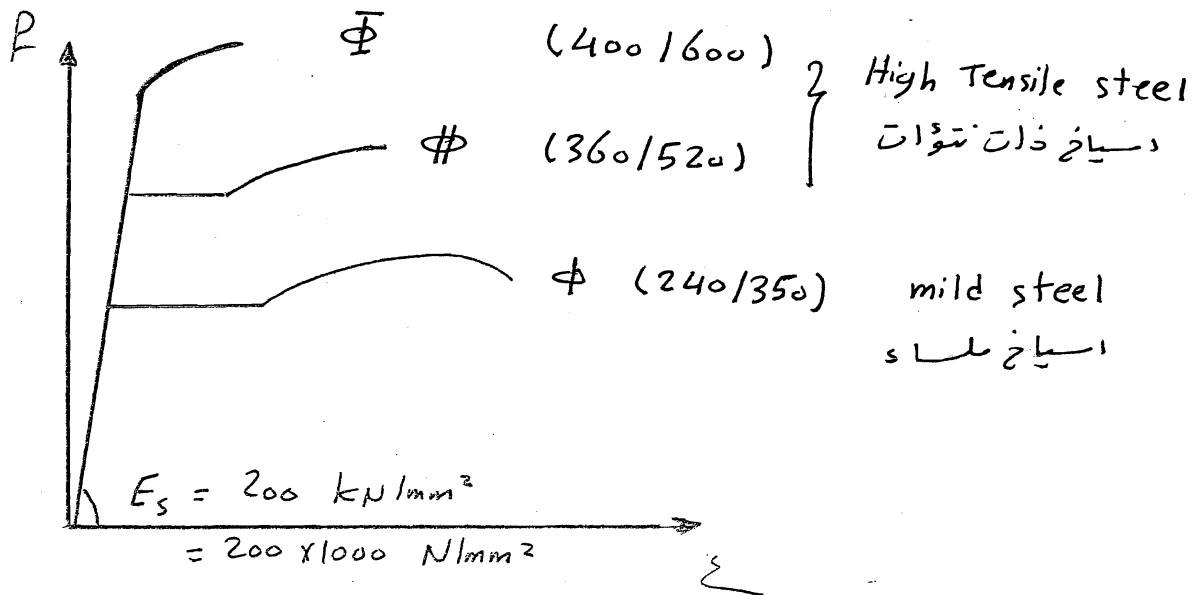 Φ̄ (400/600)
High Tensile steel
اسياخ ذات نتؤات
(360/520)
ϕ (240/350) mild steel
اسياخ ملساء
Es = 200 kN/mm²
= 200 x 1000 N/mm²
ε